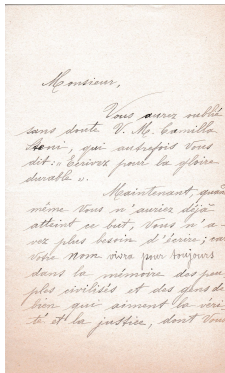 Monsieur,
Vous aurez oublié
sans doute V. M. Camilla
qui autrefois Vous
dit: « Ecrivez pour la gloire
durable ».
Maintenant, quand
même Vous n'auriez déjà
atteint ce but, Vous n'a
vez plus besoin d'écrire; car
Votre Nom vivra pour toujours
dans la mémoire des peu
ples civilisés et des gens de
bien qui aiment la véri
té et la justice, dont Vous